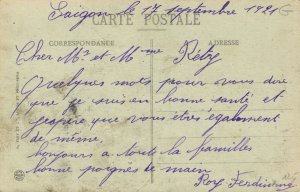 Saigon, le 17 septembre 1921
CARTE POSTALE
CORRESPONDANCE
ADRESSE
Cher Mr et Mme Réby
Quelques mots pour vous dire
que je suis en bonne santé et
j'espère que vous êtes également
de même,
bonjours a toute la familles
bonne poignés de main
Roy Ferdinand